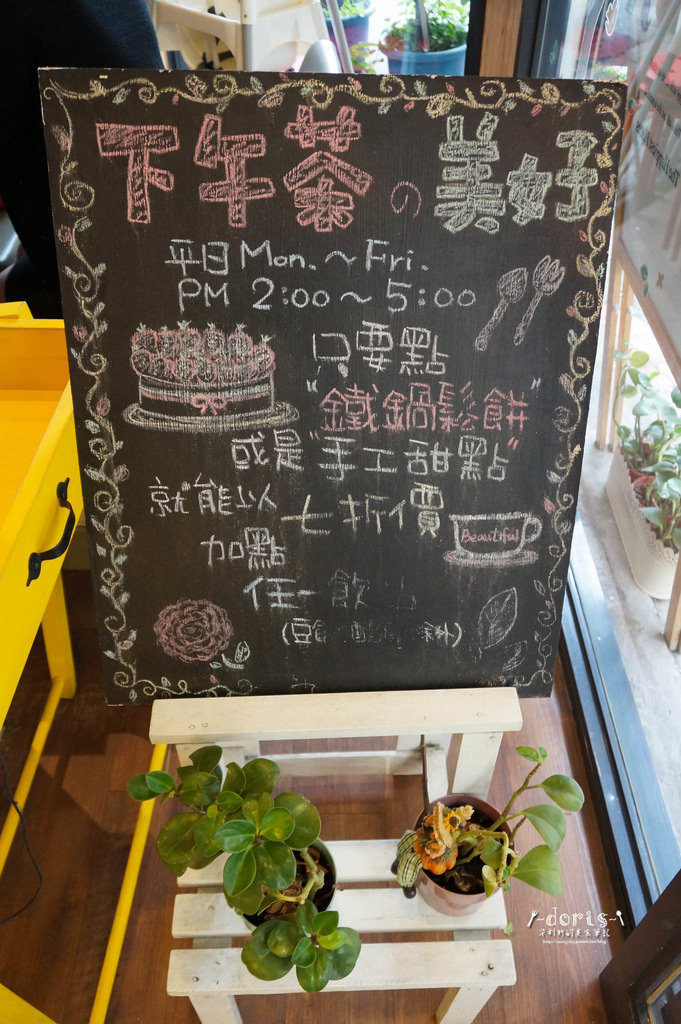 下午茶の美好
平日Mon.～Fri.
PM 2:00～5:00
只要點
"鐵鍋鬆餅"
或是"手工甜點"
就能以七折價
加點
任一飲
Beautiful
-doris-